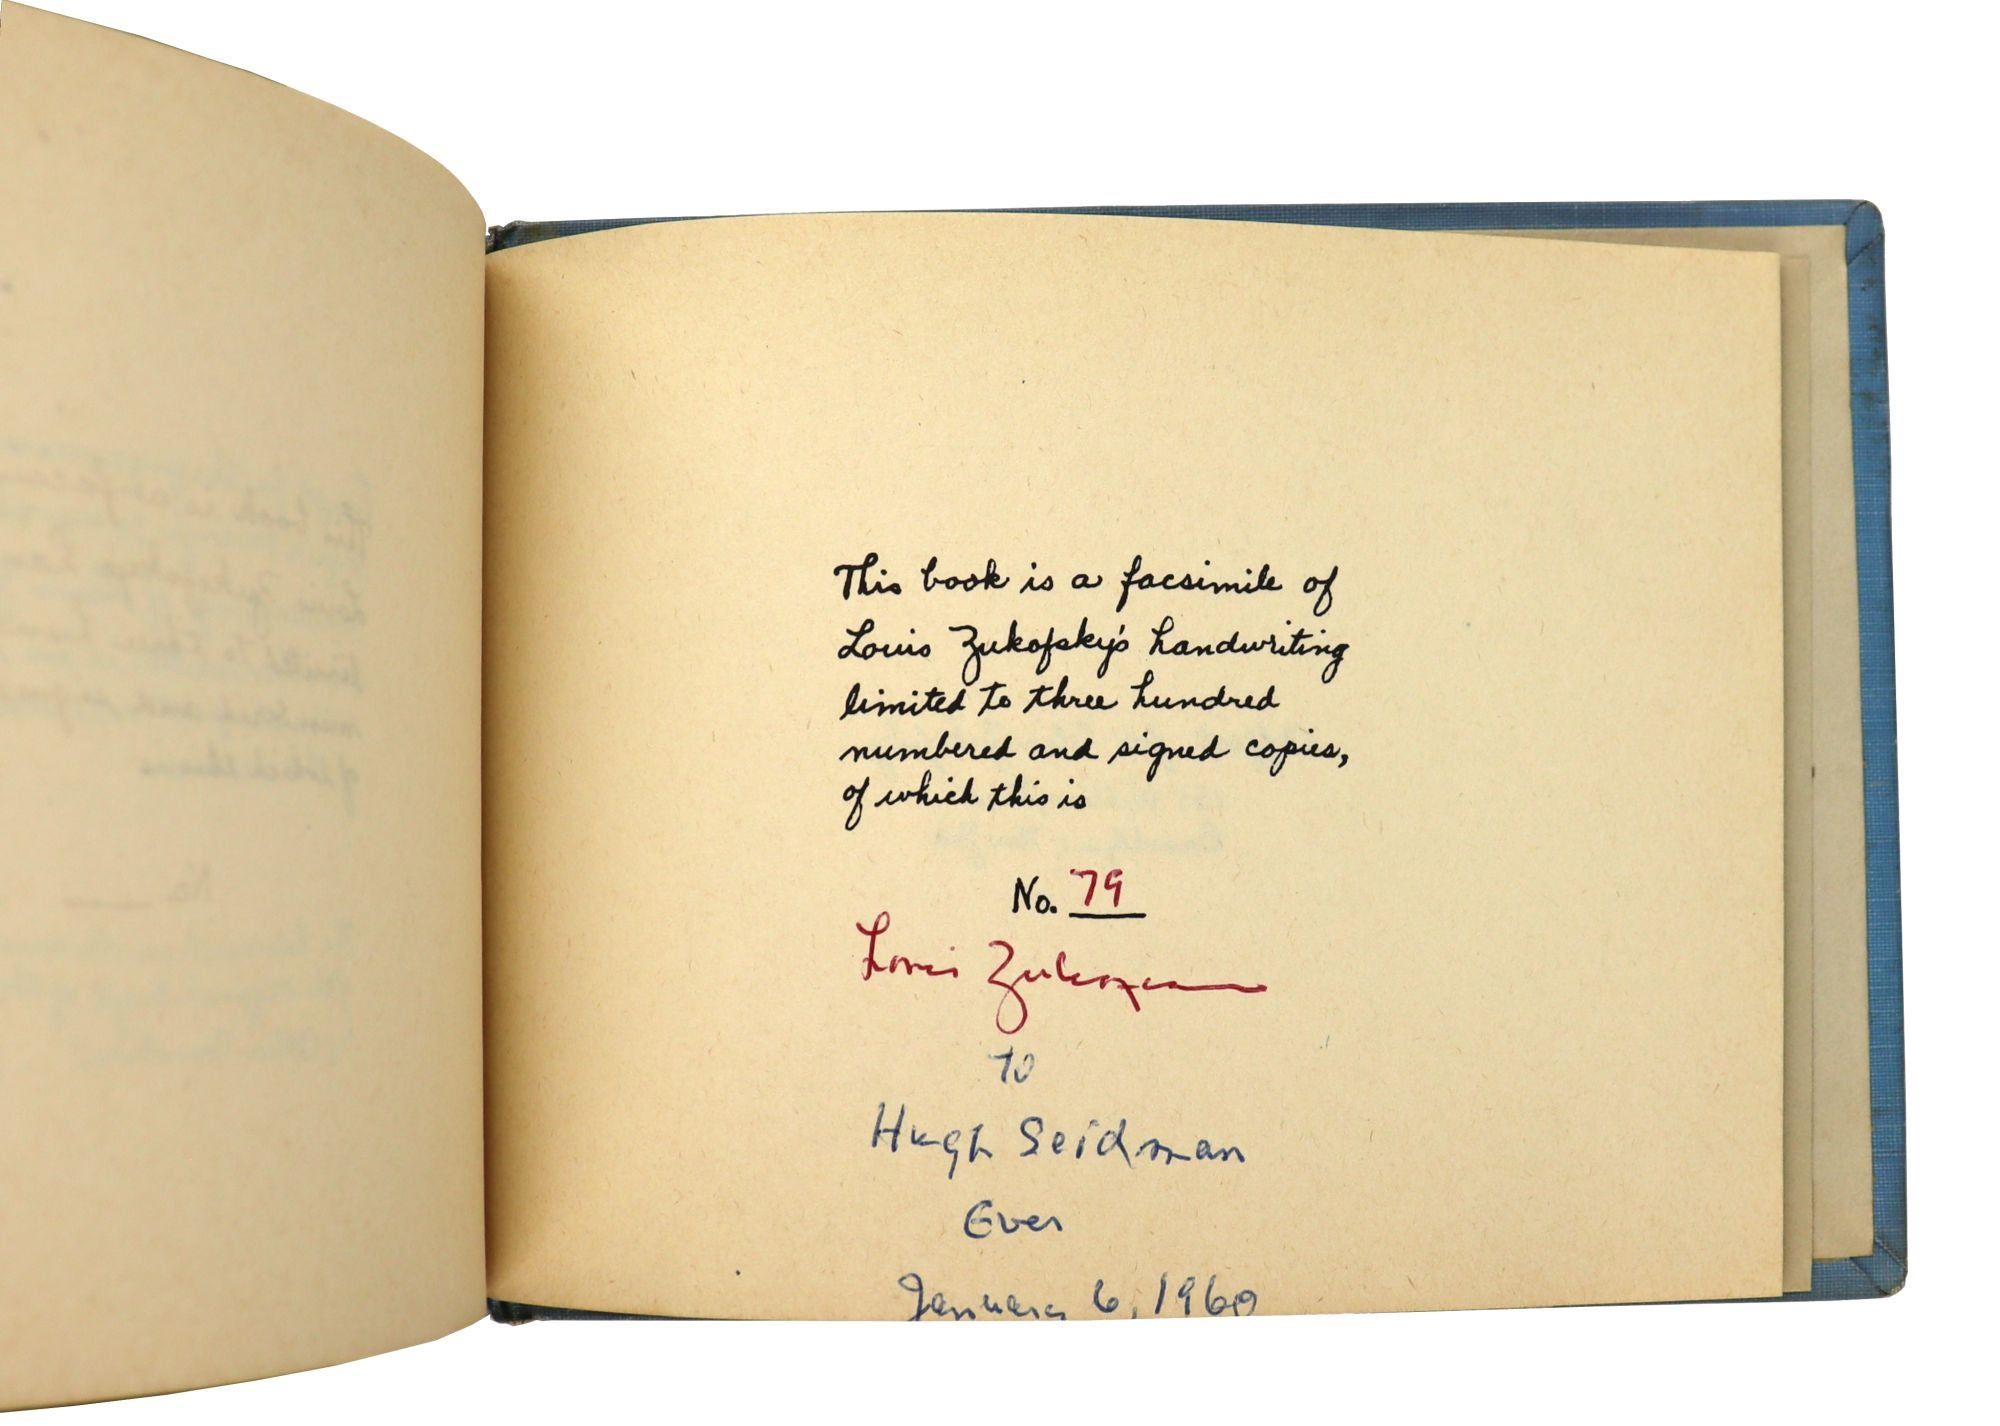 This book is a facsimile of
Louis Zukofsky's handwriting
limited to three hundred
numbered and signed copies,
of which this is
No. 79
Louis Zukofsky
To
Hugh Seidman
Ever
January 6,